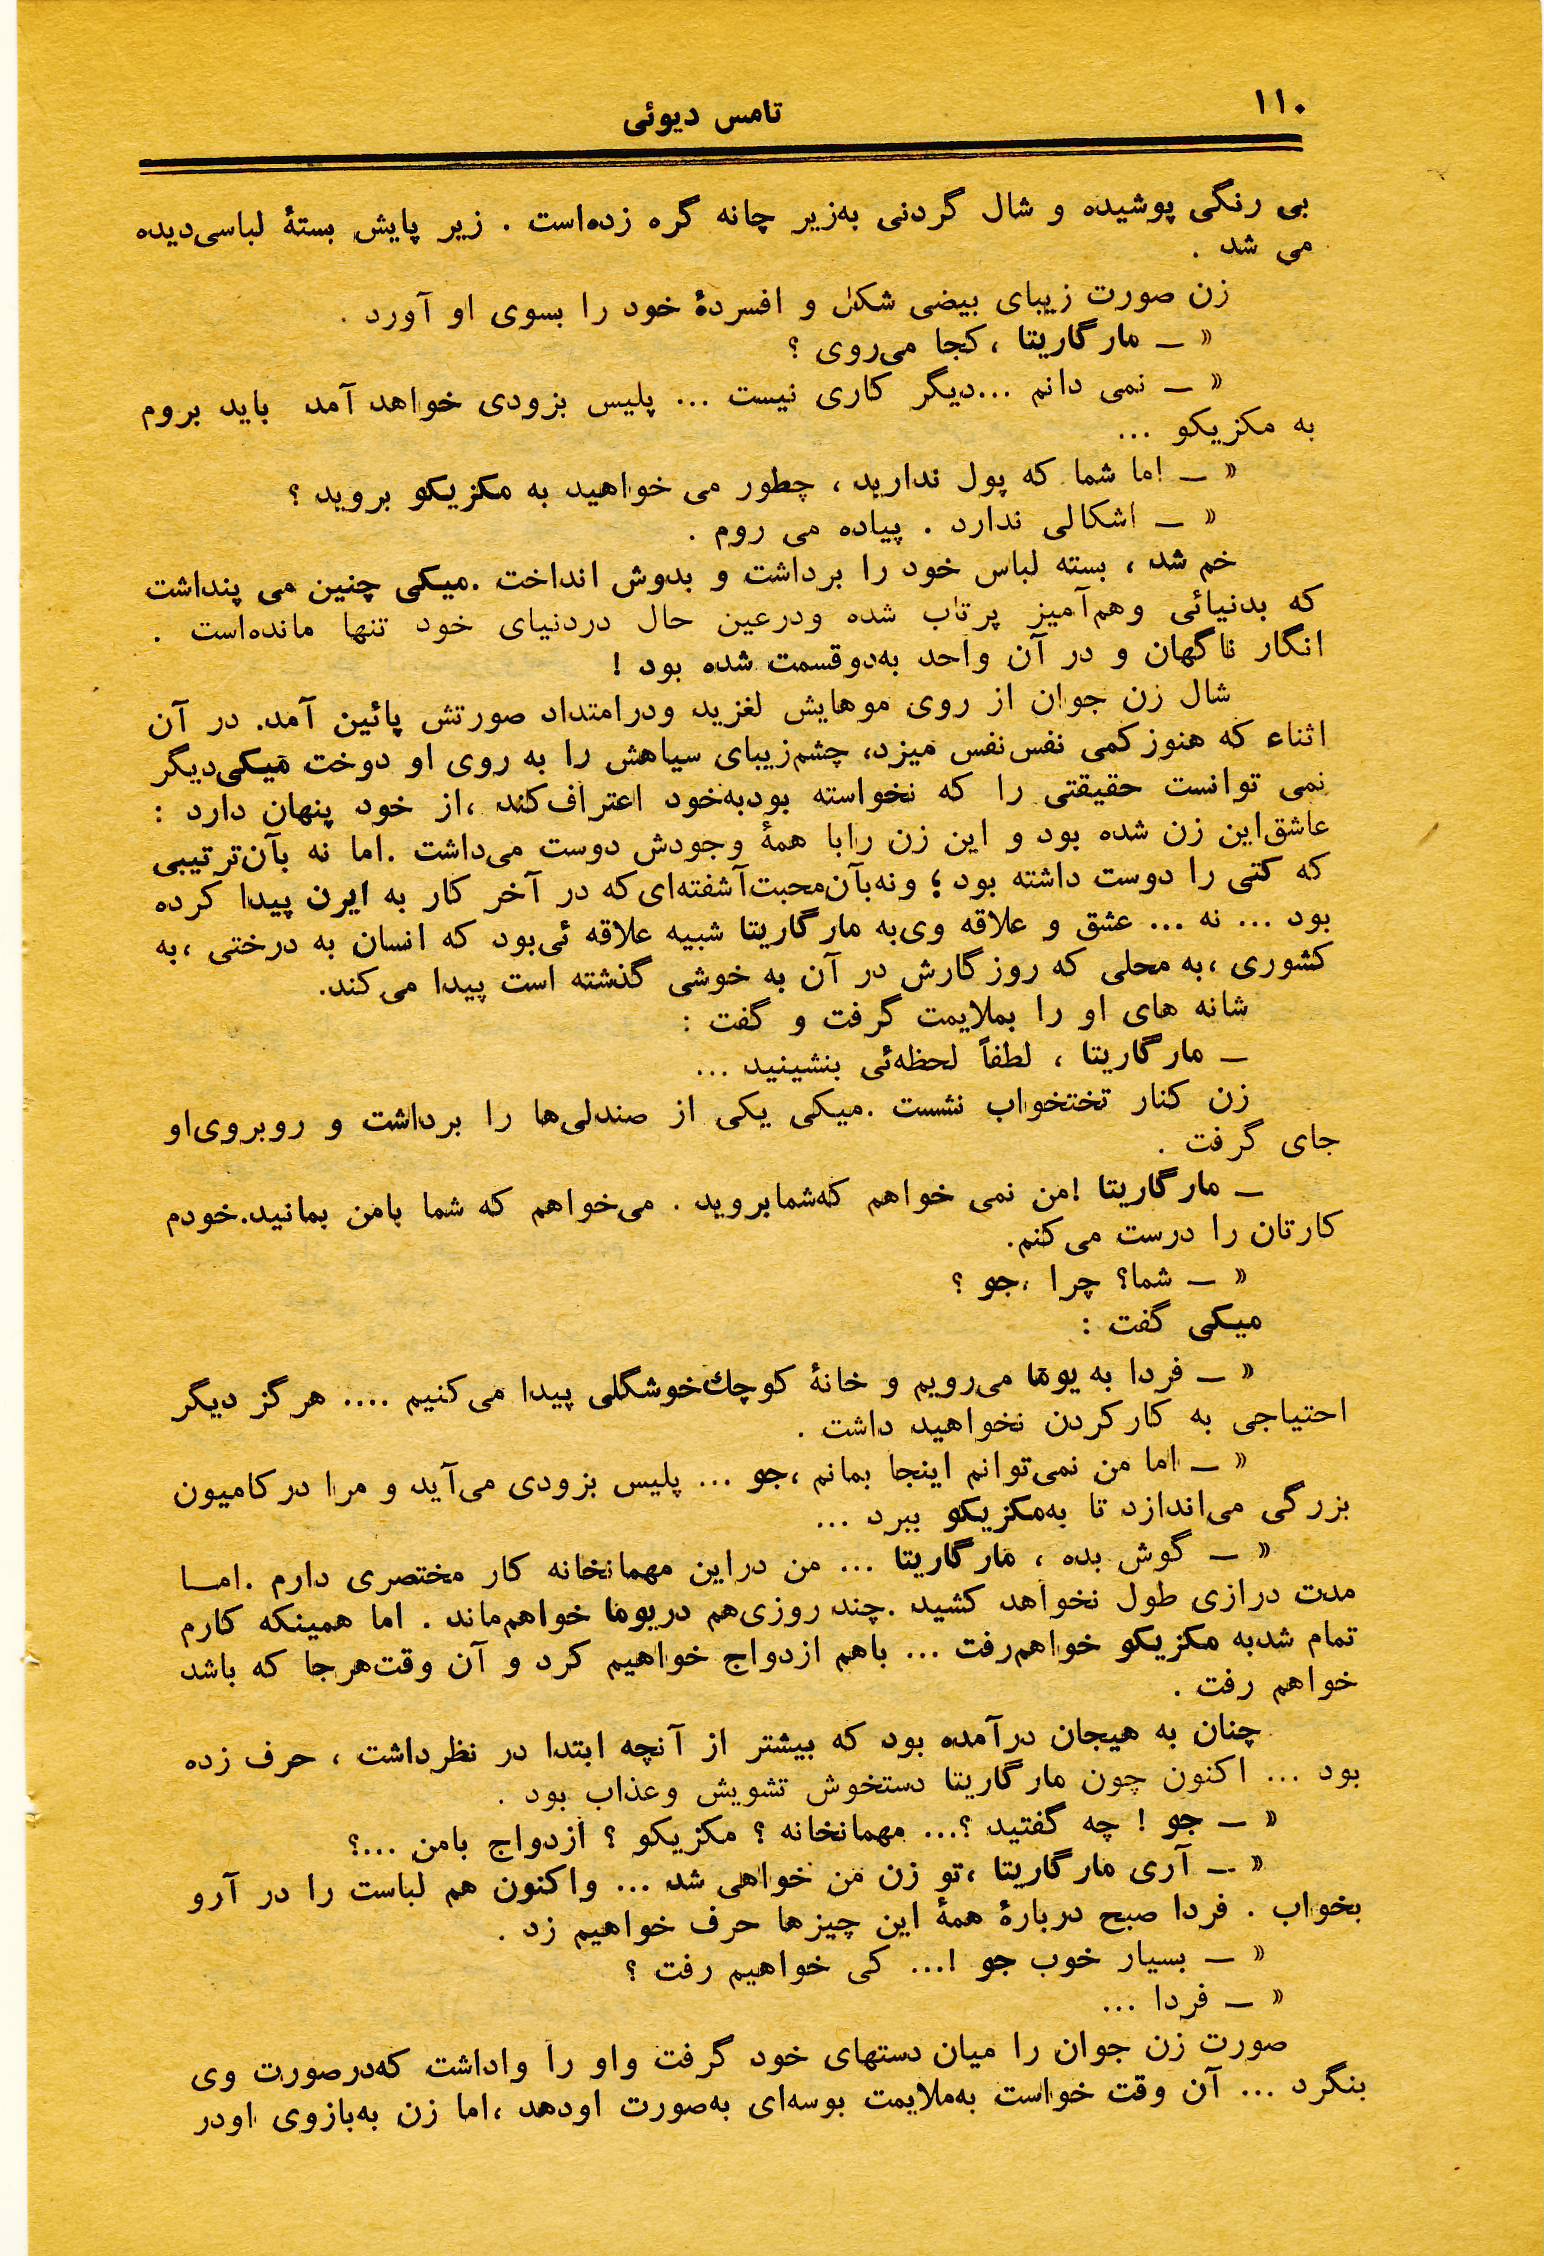 ۱۱۰
تامس دیوئی
بی رنگی پوشیده و شال گردنی به‌زیر چانه گره زده‌است . زیر پایش بستهٔ لباسی‌دیده
می شد .
زن صورت زیبای بیضی شکل و افسردهٔ خود را بسوی او آورد .
« ــ مارگاریتا ، کجا می‌روی ؟
« ــ نمی دانم ...دیگر کاری نیست ... پلیس بزودی خواهد آمد باید بروم
به مکزیکو ...
« ــ اما شما که پول ندارید ، چطور می خواهید به مکزیکو بروید ؟
« ــ اشکالی ندارد . پیاده می روم .
خم شد ، بسته لباس خود را برداشت و بدوش انداخت .میکی چنین می پنداشت
که بدنیائی وهم‌آمیز پرتاب شده ودرعین حال دردنیای خود تنها مانده‌است .
انگار ناگهان و در آن واحد به‌دوقسمت شده بود !
شال زن جوان از روی موهایش لغزید ودرامتداد صورتش پائین آمد. در آن
اثناء که هنوز کمی نفس‌نفس میزد، چشم‌زیبای سیاهش را به روی او دوخت میکی‌دیگر
نمی توانست حقیقتی را که نخواسته بودبه‌خود اعتراف‌کند ،از خود پنهان دارد :
عاشق‌این زن شده بود و این زن رابا همهٔ وجودش دوست می‌داشت .اما نه بآن‌ترتیبی
که کتی را دوست داشته بود ؛ ونه‌بآن‌محبت‌آشفته‌ای‌که در آخر کار به ایرن پیدا کرده
بود ... نه ... عشق و علاقه وی‌به مارگاریتا شبیه علاقه ئی‌بود که انسان به درختی ،به
کشوری ،به محلی که روزگارش در آن به خوشی گذشته است پیدا می‌کند.
شانه های او را بملایمت گرفت و گفت :
ــ مارگاریتا ، لطفاً لحظه‌ئی بنشینید ...
زن کنار تختخواب نشست .میکی یکی از صندلی‌ها را برداشت و روبروی‌او
جای گرفت .
ــ مارگاریتا !من نمی خواهم که‌شمابروید . می‌خواهم که شما بامن بمانید.خودم
کارتان را درست می‌کنم.
« ــ شما؟ چرا ،جو ؟
میکی گفت :
« ــ فردا به یوما می‌رویم و خانهٔ کوچك‌خوشگلی پیدا می‌کنیم .... هرگز دیگر
احتیاجی به کارکردن نخواهید داشت .
« ــ اما من نمی‌توانم اینجا بمانم ،جو ... پلیس بزودی می‌آید و مرا درکامیون
بزرگی می‌اندازد تا به‌مکزیکو ببرد ...
« ــ گوش بده ، مارگاریتا ... من دراین مهمانخانه کار مختصری دارم .امــا
مدت درازی طول نخواهد کشید .چند روزی‌هم دریوما خواهم‌ماند . اما همینکه کارم
تمام شدبه مکزیکو خواهم‌رفت ... باهم ازدواج خواهیم کرد و آن وقت‌هرجا که باشد
خواهم رفت .
چنان به هیجان درآمده بود که بیشتر از آنچه ابتدا در نظرداشت ، حرف زده
بود ... اکنون چون مارگاریتا دستخوش تشویش وعذاب بود .
« ــ جو ! چه گفتید ؟... مهمانخانه ؟ مکزیکو ؟ ازدواج بامن ...؟
« ــ آری مارگاریتا ،تو زن من خواهی شد ... واکنون هم لباست را در آرو
بخواب . فردا صبح دربارهٔ همهٔ این چیزها حرف خواهیم زد .
« ــ بسیار خوب جو !... کی خواهیم رفت ؟
« ــ فردا ...
صورت زن جوان را میان دستهای خود گرفت واو را واداشت که‌درصورت وی
بنگرد ... آن وقت خواست به‌ملایمت بوسه‌ای به‌صورت اودهد ،اما زن به‌بازوی اودر